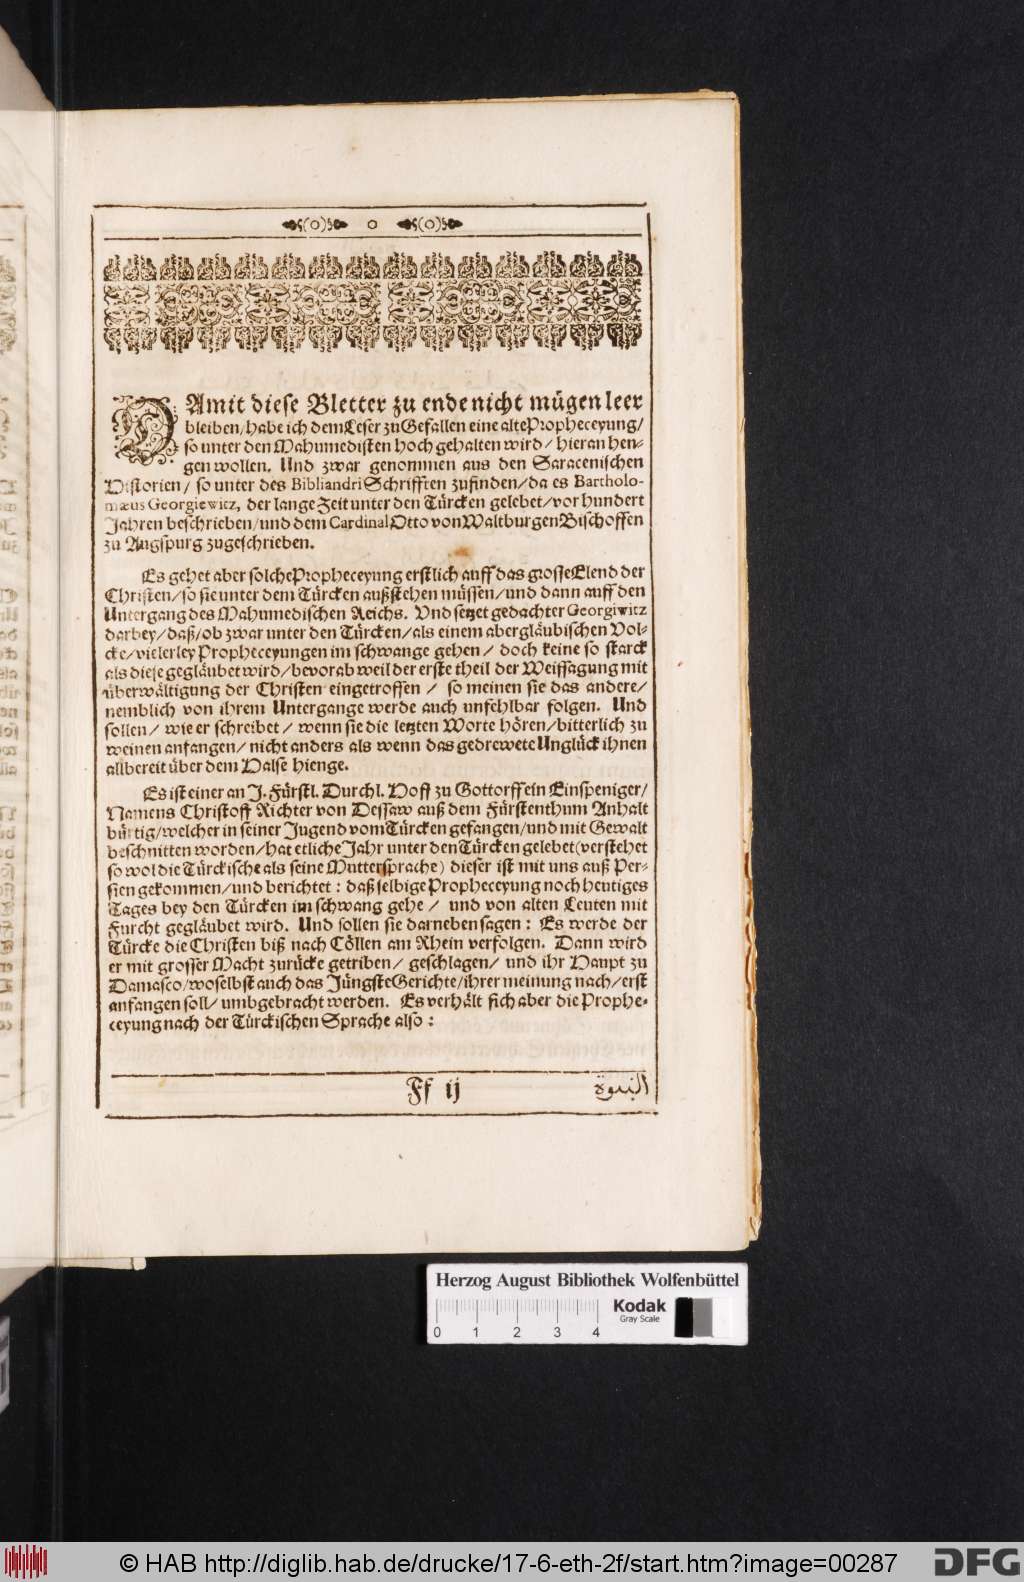 DAmit diese Bletter zu ende nicht mügen leer
bleiben/ habe ich dem Leser zu Gefallen eine alte Propheceyung/
so unter den Mahumedisten hoch gehalten wird/ hieran hen-
gen wollen. Und zwar genommen aus den Saracenischen
Historien/ so unter des Bibliandri Schrifften zufinden/ da es Bartholo-
mæus Georgiewitz, der lange Zeit unter den Türcken gelebet/ vor hundert
Jahren beschrieben/ und dem Cardinal Otto von Waltburgen Bischoffen
zu Augspurg zugeschrieben.
Es gehet aber solche Propheceyung erstlich auff das grosse Elend der
Christen/ so sie unter dem Türcken außstehen müssen/ und dann auff den
Untergang des Mahumedischen Reichs. Und setzet gedachter Georgiwitz
darbey/ daß/ ob zwar unter den Türcken/ als einem abergläubischen Vol-
cke/ vielerley Propheceyungen im schwange gehen/ doch keine so starck
als diese gegläubet wird/ bevorab weil der erste theil der Weissagung mit
überwältigung der Christen eingetroffen/ so meinen sie das andere/
nemblich von ihrem Untergange werde auch unfehlbar folgen. Und
sollen/ wie er schreibet/ wenn sie die letzten Worte hören/ bitterlich zu
weinen anfangen/ nicht anders als wenn das gedrewete Unglück ihnen
allbereit über dem Halse hienge.
Es ist einer an J. Fürstl. Durchl. Hoff zu Gottorff ein Einspeniger/
Namens Christoff Richter von Dessaw auß dem Fürstenthum Anhalt
bürtig/ welcher in seiner Jugend vom Türcken gefangen/ und mit Gewalt
beschnitten worden/ hat etliche Jahr unter den Türcken gelebet (verstehet
so wol die Türckische als seine Muttersprache) dieser ist mit uns auß Per-
sien gekommen/ und berichtet: daß selbige Propheceyung noch heutiges
Tages bey den Türcken im schwang gehe/ und von alten Leuten mit
Furcht gegläubet wird. Und sollen sie darneben sagen: Es werde der
Türcke die Christen biß nach Cöllen am Rhein verfolgen. Dann wird
er mit grosser Macht zurücke getrieben/ geschlagen/ und ihr Haupt zu
Damasco/ woselbst auch das Jüngste Gerichte/ ihrer meinung nach/ erst
anfangen soll/ umbgebracht werden. Es verhält sich aber die Prophe-
ceyung nach der Türckischen Sprache also:
Ff ij النبوة
Herzog August Bibliothek Wolfenbüttel
Kodak
Gray Scale
0 1 2 3 4
© HAB http://diglib.hab.de/drucke/17-6-eth-2f/start.htm?image=00287
DFG